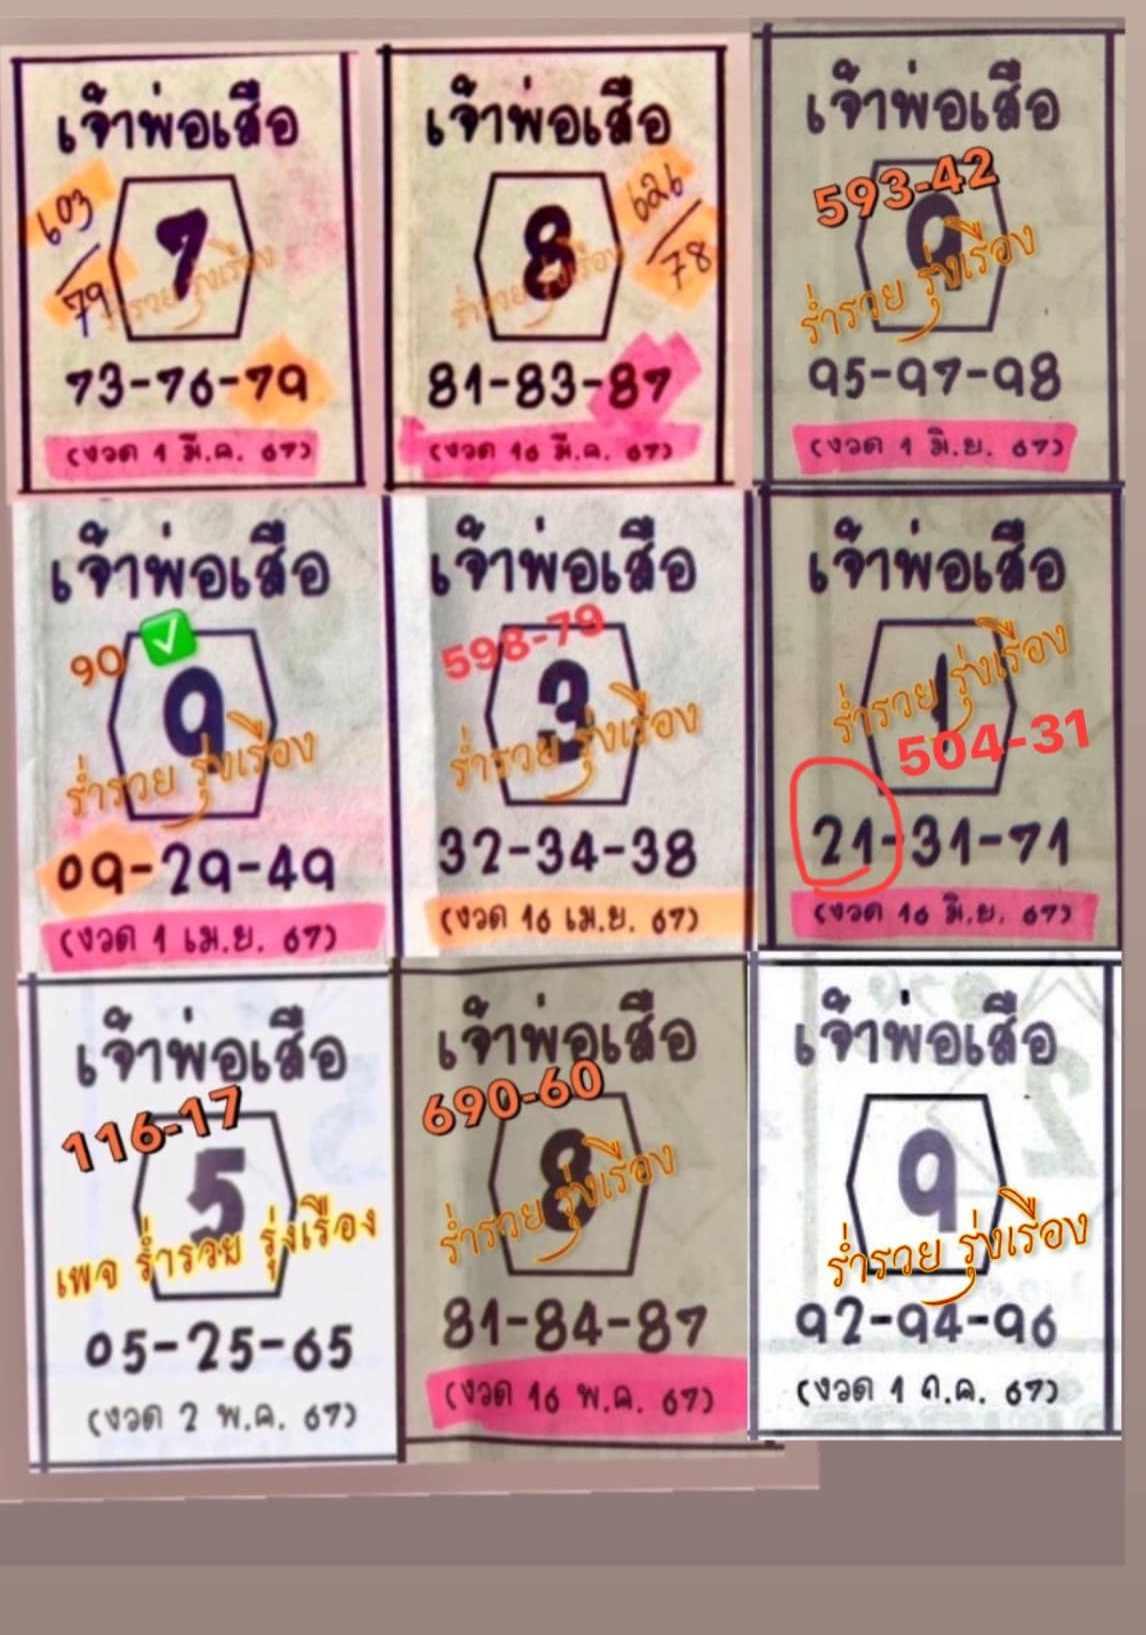 เจ้าพ่อเสือ
603
79
7
ร่ำรวย รุ่งเรือง
73-76-79
(งวด 1 มี.ค. 67)
เจ้าพ่อเสือ
626
78
8
ร่ำรวย รุ่งเรือง
81-83-87
(งวด 16 มี.ค. 67)
เจ้าพ่อเสือ
593-42
9
ร่ำรวย รุ่งเรือง
95-97-98
(งวด 1 มิ.ย. 67)
เจ้าพ่อเสือ
90
9
ร่ำรวย รุ่งเรือง
09-29-49
(งวด 1 เม.ย. 67)
เจ้าพ่อเสือ
598-79
3
ร่ำรวย รุ่งเรือง
32-34-38
(งวด 16 เม.ย. 67)
เจ้าพ่อเสือ
1
ร่ำรวย รุ่งเรือง
504-31
21-31-71
(งวด 16 มิ.ย. 67)
เจ้าพ่อเสือ
116-17
5
เพจ ร่ำรวย รุ่งเรือง
05-25-65
(งวด 2 พ.ค. 67)
เจ้าพ่อเสือ
690-60
8
ร่ำรวย รุ่งเรือง
81-84-87
(งวด 16 พ.ค. 67)
เจ้าพ่อเสือ
9
ร่ำรวย รุ่งเรือง
92-94-96
(งวด 1 ก.ค. 67)